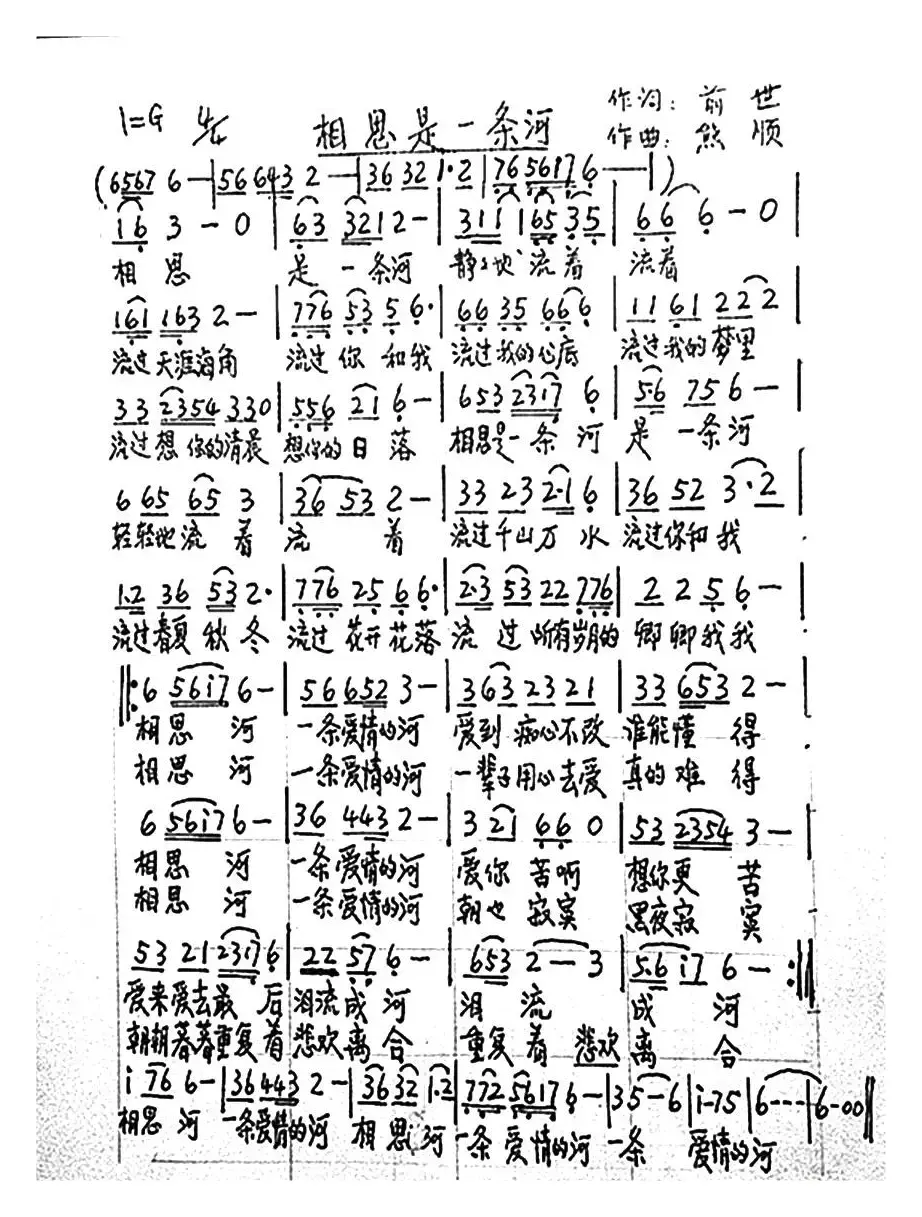 1=G 4/4 相思是一条河 作词: 前世
作曲: 熊顺
(6567 6 — | 56 643 2 — | 36 32 1·2 | 76 5617 6 — | )
16 3 — 0 | 63 321 2 — | 311 165 35 | 66 6 — 0 |
相思 是一条河 静静地流着 流着
161 163 2 — | 776 53 5 6· | 66 35 66 6 | 11 61 22 2 |
流过天涯海角 流过你和我 流过我的心底 流过我的梦里
33 2354 330 | 556 21 6 — | 653 2317 6 | 5·6 75 6 — |
流过想你的清晨 想你的日落 相思是一条河 是一条河
6 65 65 3 | 36 53 2 — | 33 23 2·1 6 | 36 52 3·2 |
轻轻地流着 流着 流过千山万水 流过你和我
1·2 36 53 2· | 776 25 6 6· | 2·3 53 22 776 | 2 2 5 6 — |
流过春夏秋冬 流过花开花落 流过所有岁月的 卿卿我我
‖: 6 56i7 6 — | 56 652 3 — | 363 23 21 | 33 653 2 — |
相思河 一条爱情的河 爱到痴心不改 谁能懂得
相思河 一条爱情的河 一辈子用心去爱 真的难得
6 56i7 6 — | 36 443 2 — | 3 21 66 0 | 53 2354 3 — |
相思河 一条爱情的河 爱你苦啊 想你更苦
相思河 一条爱情的河 朝也寂寞 黑夜寂寞
53 21 2317 6 | 22 57 6 — | 653 2 — 3 | 5·6 i7 6 — :‖
爱来爱去最后 泪流成河 泪流成河
朝朝暮暮重复着 悲欢离合 重复着悲欢离合
i 76 6 — | 36 443 2 — | 36 32 1·2 | 772 5617 6 — | 35 — 6 | i — 75 | 6 — — — | 6 — 00 ‖
相思河 一条爱情的河 相思河 一条爱情的河 一条爱情的河